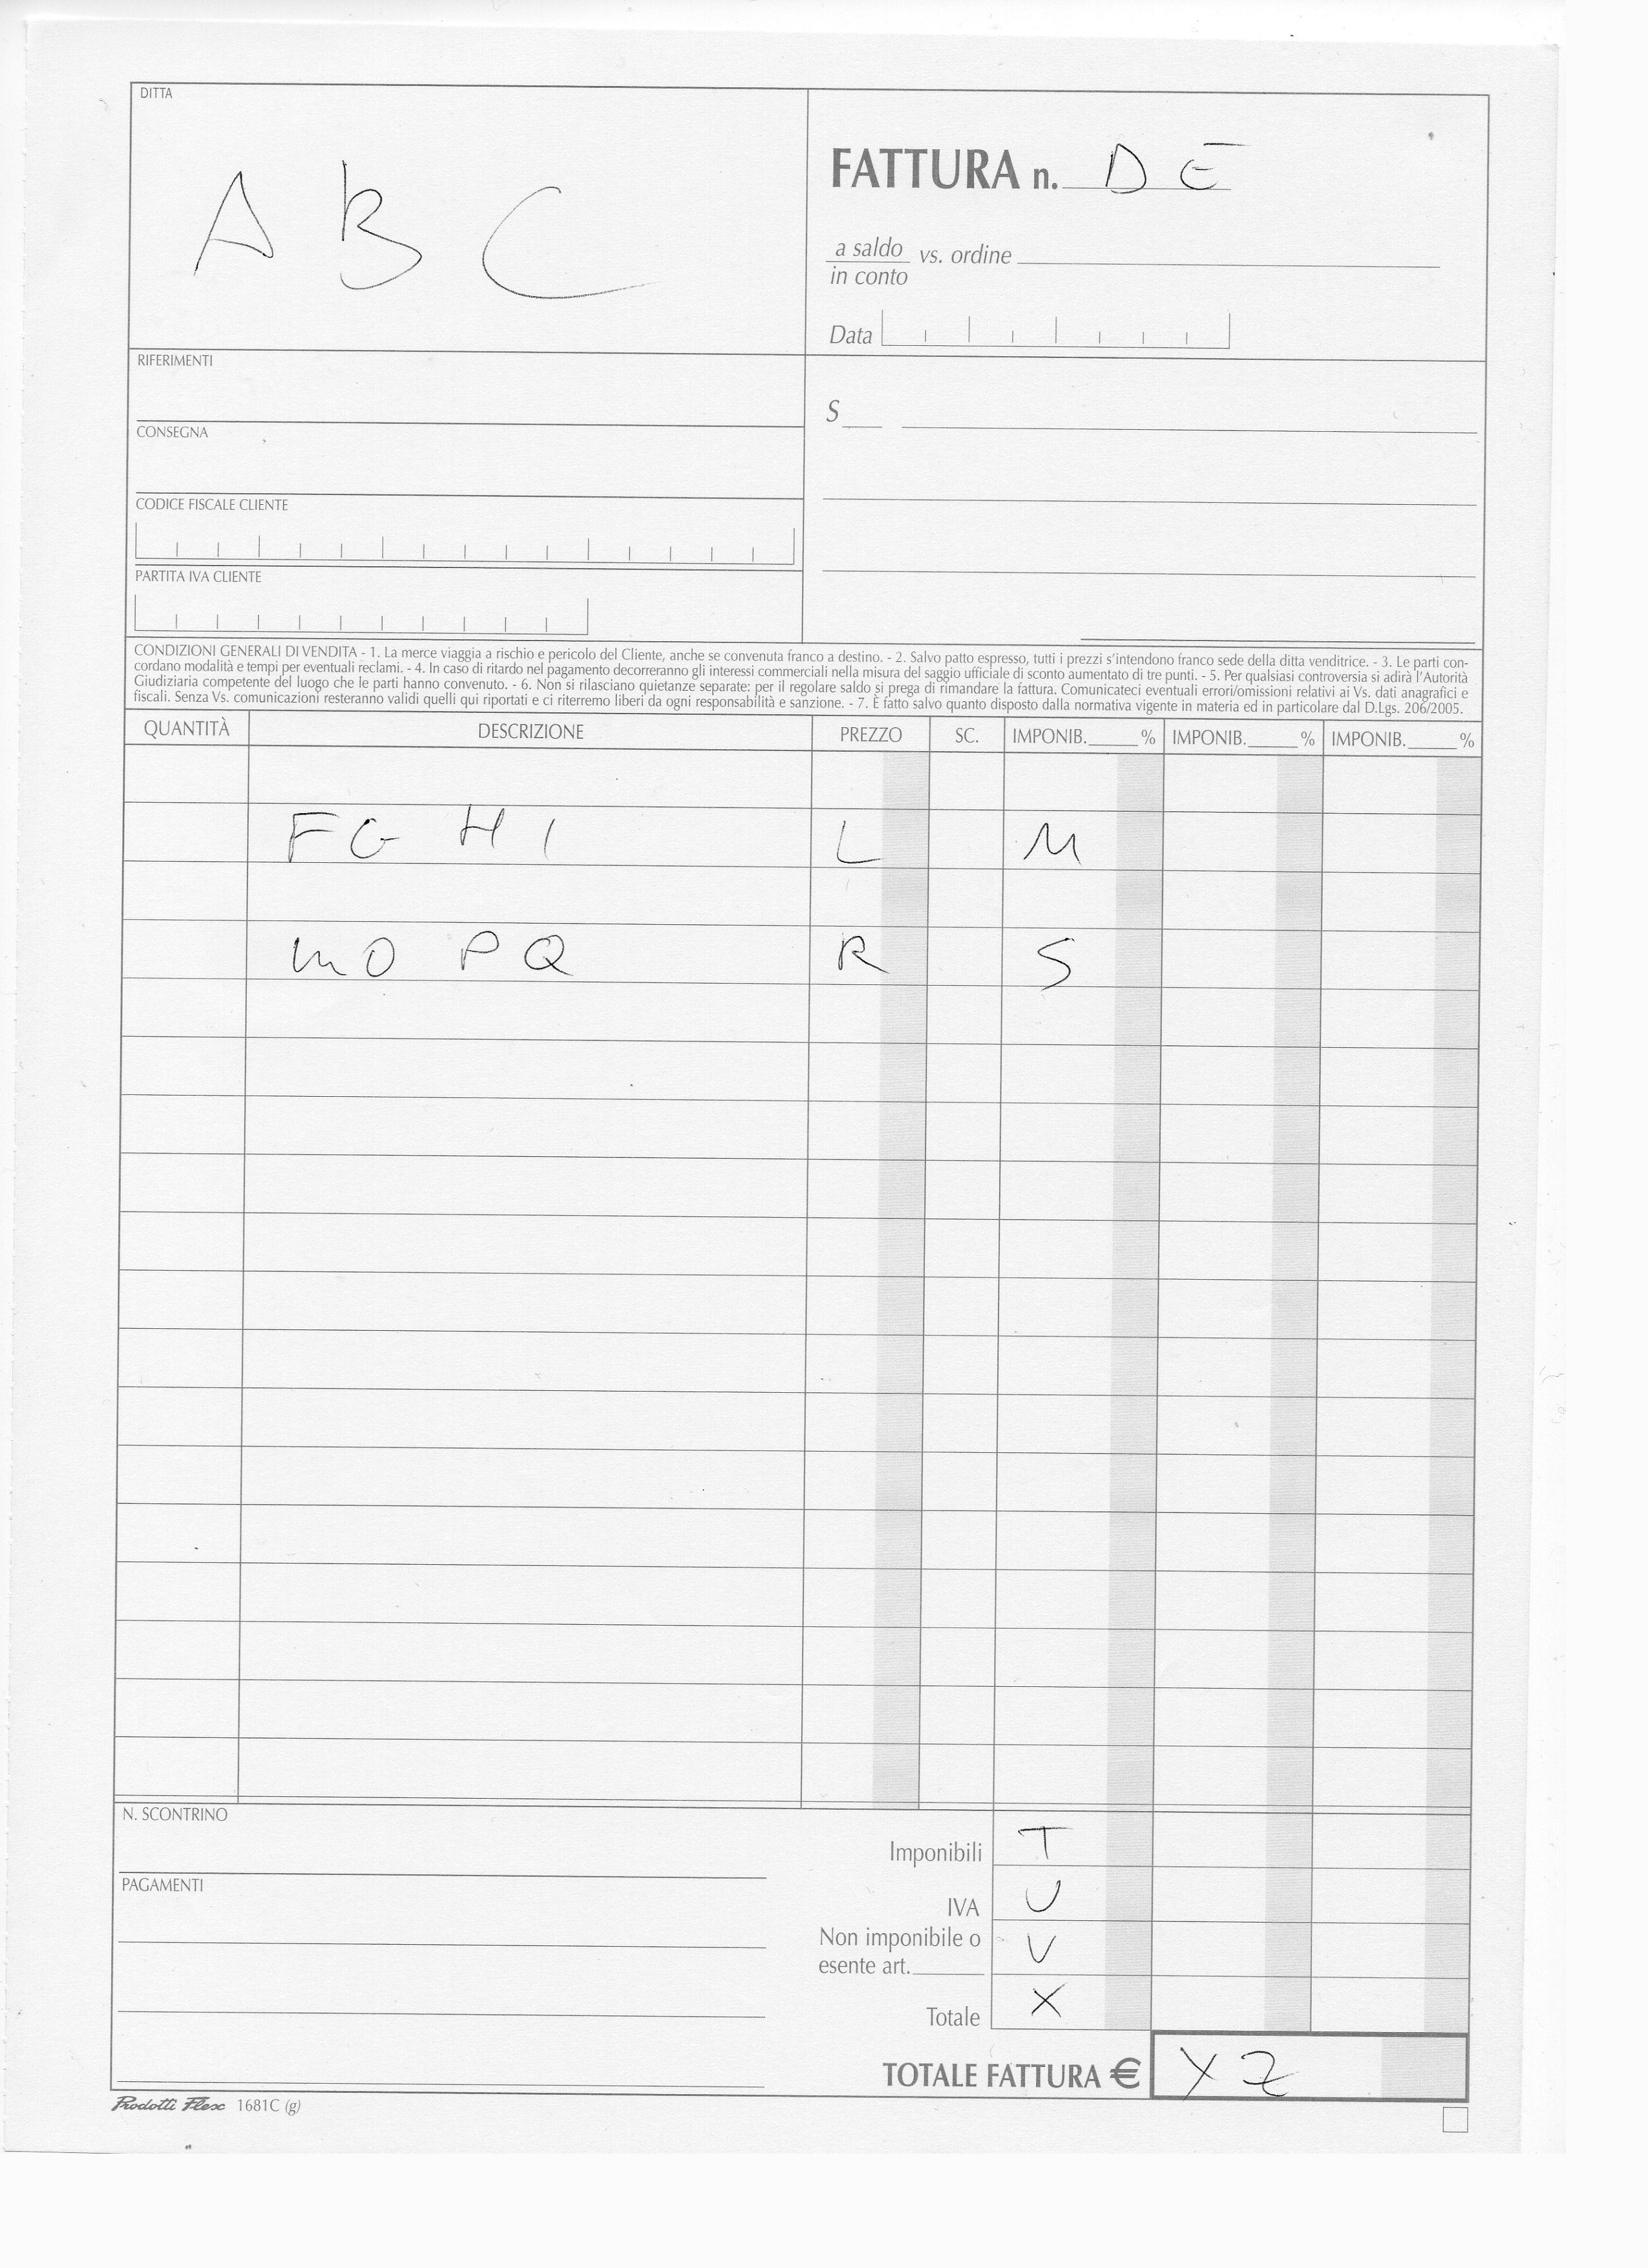 DITTA
A B C
FATTURA n. D E
a saldo vs. ordine
in conto
Data
RIFERIMENTI
S
CONSEGNA
CODICE FISCALE CLIENTE
PARTITA IVA CLIENTE
CONDIZIONI GENERALI DI VENDITA - 1. La merce viaggia a rischio e pericolo del Cliente, anche se convenuta franco a destino. - 2. Salvo patto espresso, tutti i prezzi s'intendono franco sede della ditta venditrice. - 3. Le parti con-
cordano modalità e tempi per eventuali reclami. - 4. In caso di ritardo nel pagamento decorreranno gli interessi commerciali nella misura del saggio ufficiale di sconto aumentato di tre punti. - 5. Per qualsiasi controversia si adirà l'Autorità
Giudiziaria competente del luogo che le parti hanno convenuto. - 6. Non si rilasciano quietanze separate: per il regolare saldo si prega di rimandare la fattura. Comunicateci eventuali errori/omissioni relativi ai Vs. dati anagrafici e
fiscali. Senza Vs. comunicazioni resteranno validi quelli qui riportati e ci riterremo liberi da ogni responsabilità e sanzione. - 7. È fatto salvo quanto disposto dalla normativa vigente in materia ed in particolare dal D.Lgs. 206/2005.
QUANTITÀ DESCRIZIONE PREZZO SC. IMPONIB. % IMPONIB. % IMPONIB. %
F G H I L M
O P Q R S
N. SCONTRINO
Imponibili T
PAGAMENTI
IVA U
Non imponibile o
esente art. V
Totale X
TOTALE FATTURA € Y Z
Prodotti Flex 1681C (g)